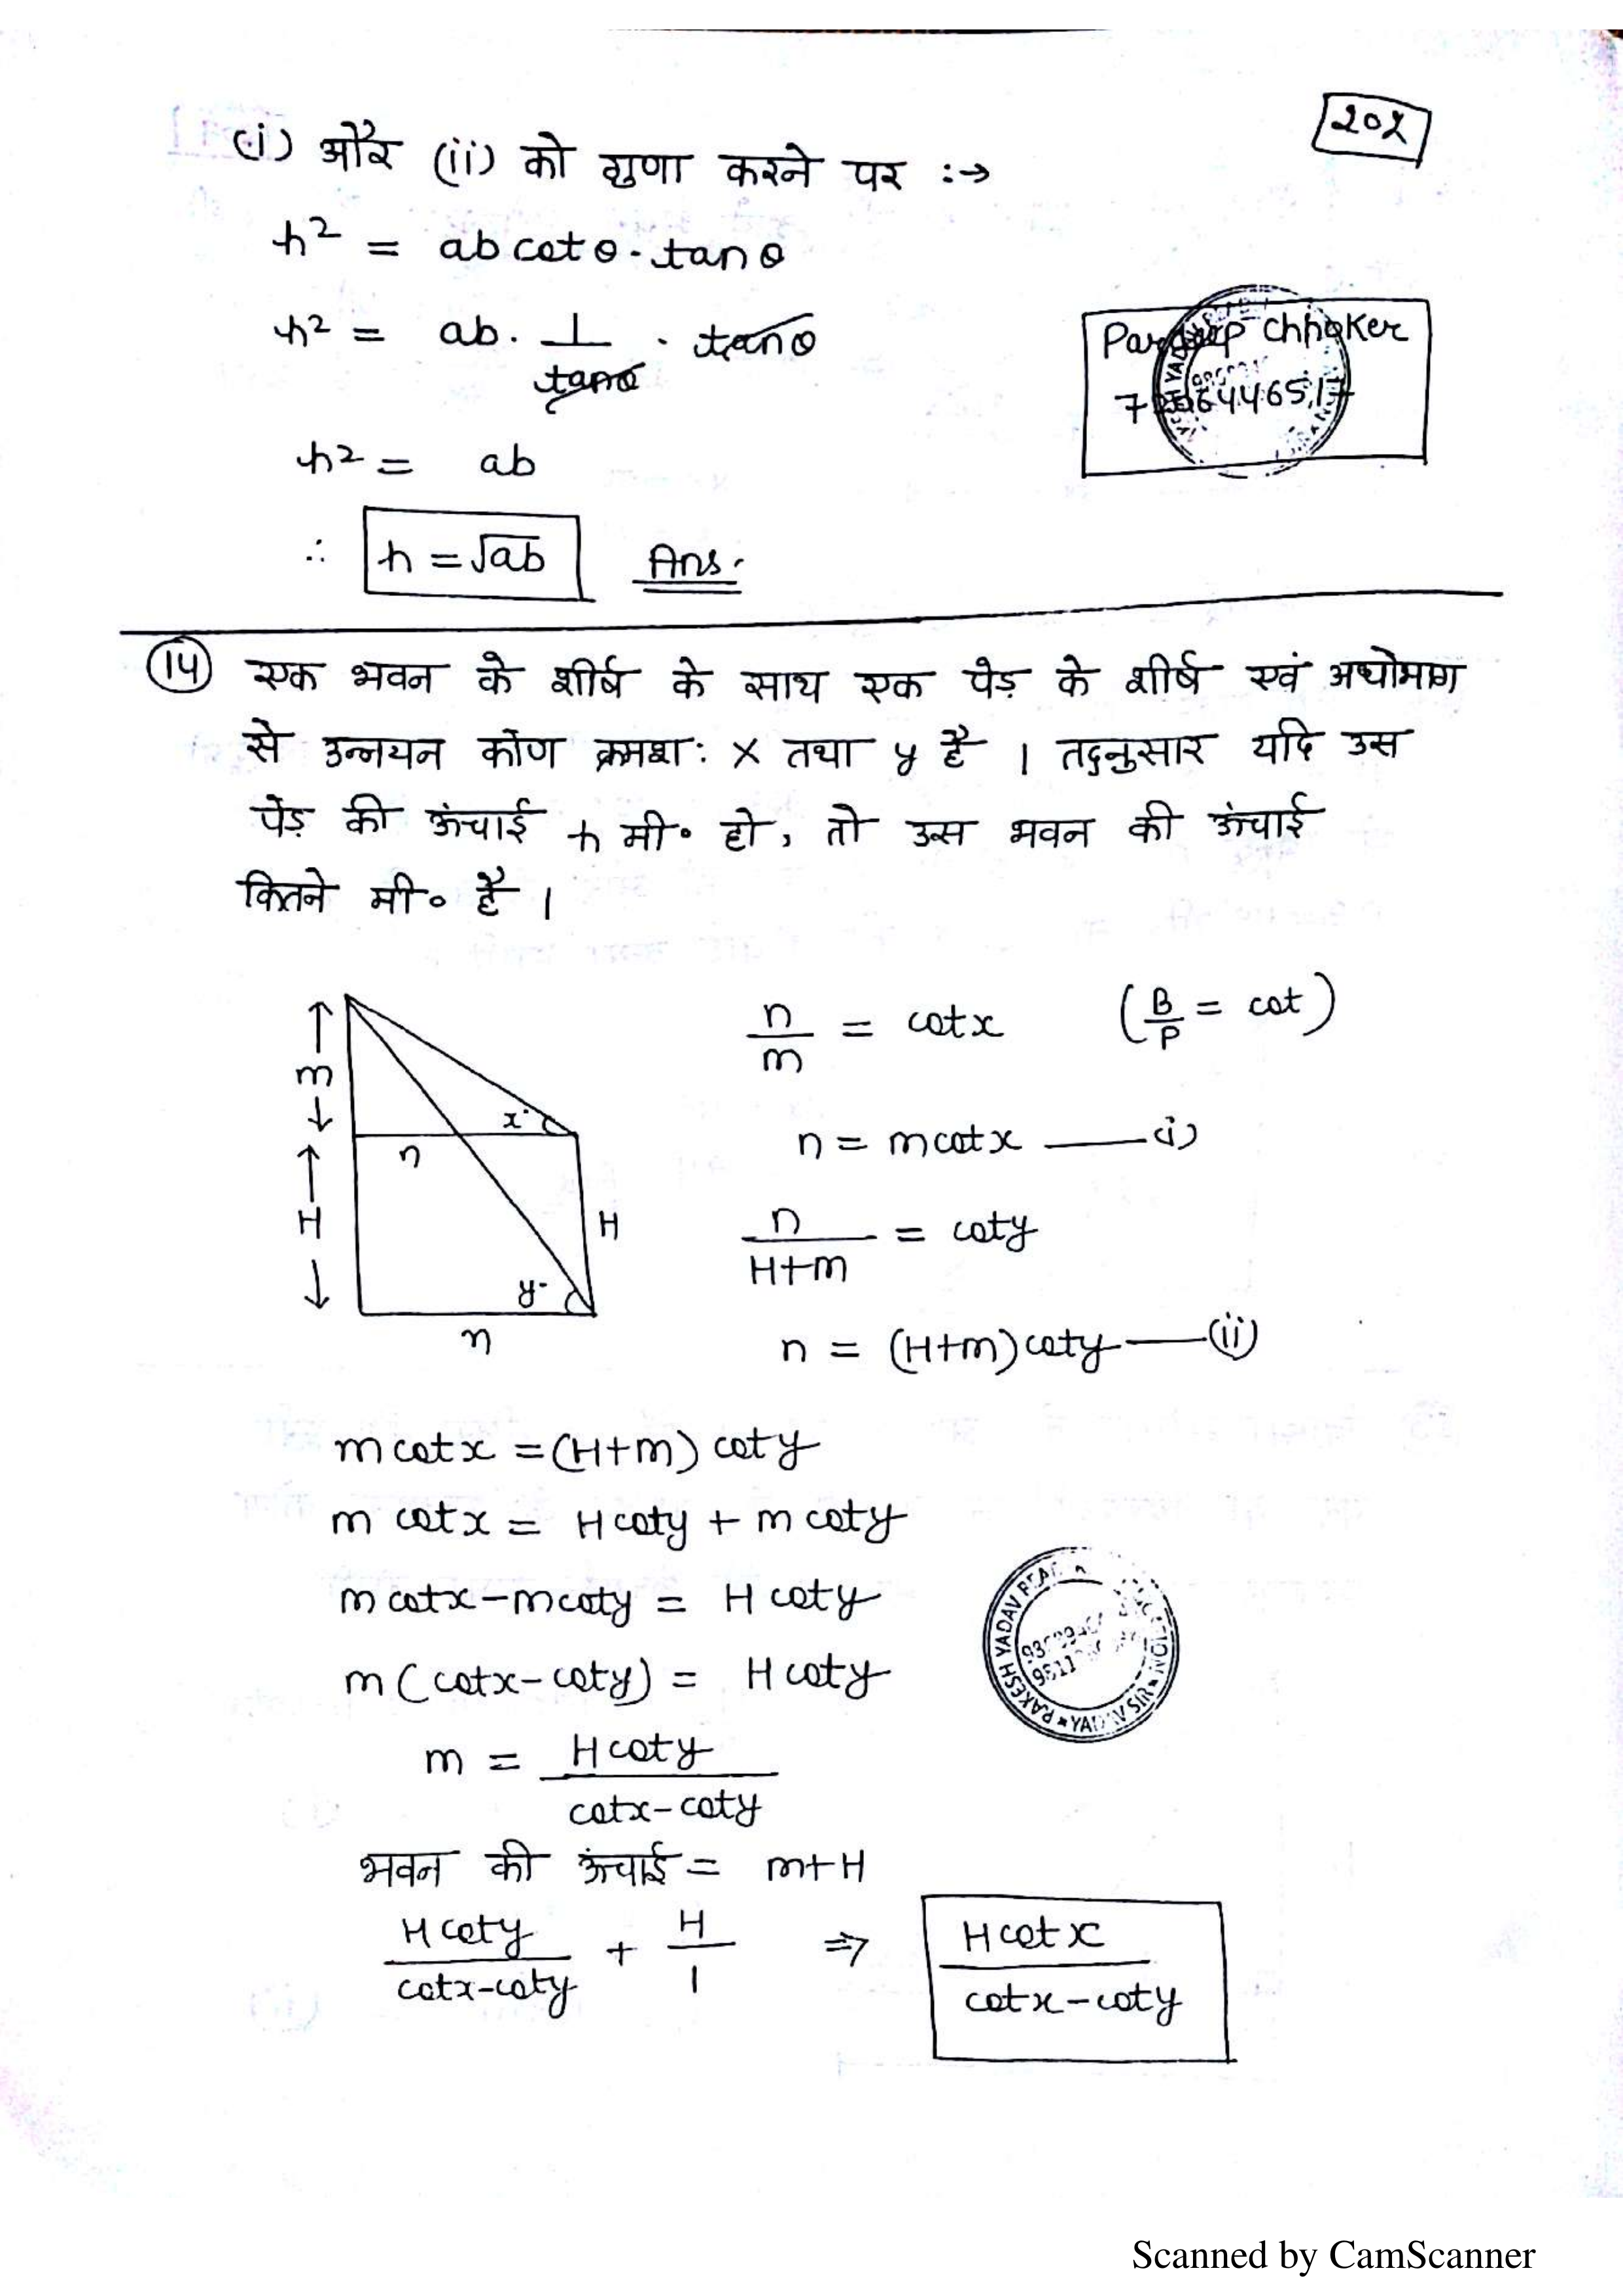 202
(i) और (ii) को गुणा करने पर :→
h² = ab cot θ . tan θ
h² = ab . 1/tanθ . tanθ
Pardeep Chhoker
h² = ab
∴ h = √ab Ans.
(14) एक भवन के शीर्ष के साथ एक पेड़ के शीर्ष एवं अधोभाग
से उन्नयन कोण क्रमशः x तथा y है । तद्नुसार यदि उस
पेड़ की ऊंचाई h मी॰ हो, तो उस भवन की ऊंचाई
कितने मी॰ है ।
m
x°
n
H
H
y°
n
n/m = cot x (B/P = cot)
n = m cot x —— (i)
n/(H+m) = cot y
n = (H+m) cot y —— (ii)
m cot x = (H+m) cot y
m cot x = H cot y + m cot y
m cot x - m cot y = H cot y
m (cot x - cot y) = H cot y
m = H cot y/(cot x - cot y)
RAKESH YADAV * YADAV SIR *
भवन की ऊंचाई = m+H
H cot y/(cot x - cot y) + H/1 ⇒ H cot x/(cot x - cot y)
Scanned by CamScanner